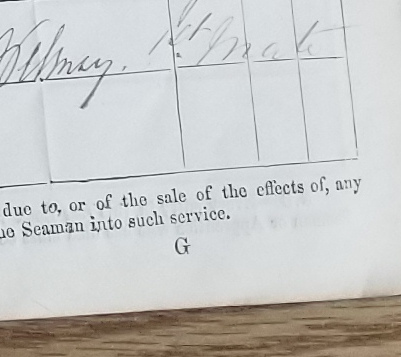 1st Mate
due to, or of the sale of the effects of, any
Seaman into such service.
G